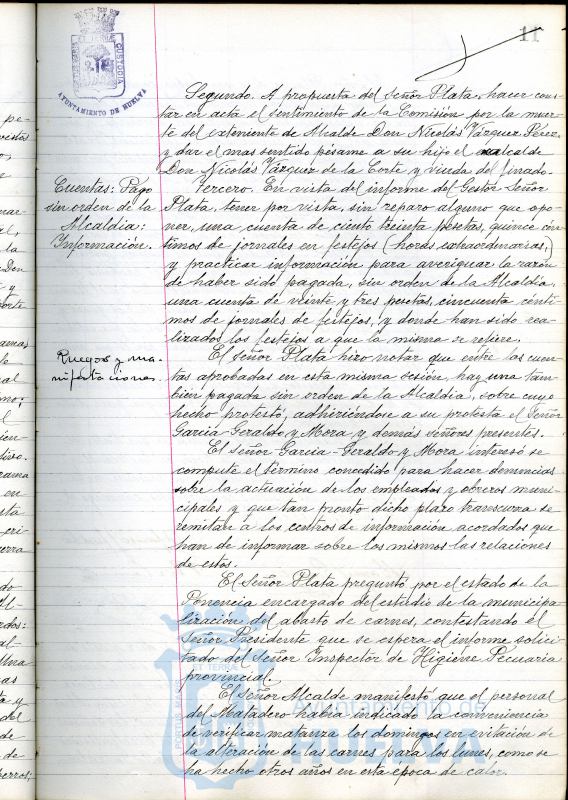 11
CUSTODIA
AYUNTAMIENTO DE HUELVA
Segundo. A propuesta del Señor Plata, hacer cons-
tar en acta el sentimiento de la Comisión por la muer-
te del exteniente de Alcalde Don Nicolás Vázquez Pérez,
y dar el mas sentido pésame a su hijo el alcalde
Don Nicolás Vázquez de la Corte y viuda del finado.
Cuentas: Pago
sin orden de la
Alcaldía:
Información.
Tercero. En vista del informe del Gestor Señor
Plata, tener por vista, sin reparo alguno que opo-
ner, una cuenta de ciento treinta pesetas, quince cén-
timos de jornales en festejos (horas extraordinarias,)
y practicar información para averiguar la razón
de haber sido pagada, sin orden de la Alcaldía,
una cuenta de veinte y tres pesetas, cincuenta cénti-
mos de jornales de festejos, y donde han sido rea-
lizados los festejos a que la misma se refiere.
Ruegos y ma-
nifestaciones.
El Señor Plata hizo notar que entre las cuen-
tas aprobadas en esta misma sesión, hay una tam-
bién pagada sin orden de la Alcaldía, sobre cuyo
hecho protestó, adhiriéndose a su protesta el Señor
Garcia-Geraldo y Mora y demás señores presentes.
El Señor Garcia-Geraldo y Mora interesó se
compute el término concedido para hacer denuncias
sobre la actuación de los empleados y obreros muni-
cipales y que tan pronto dicho plazo transcurra se
remitan a los centros de información acordados que
han de informar sobre los mismos las relaciones
de estos.
El Señor Plata preguntó por el estado de la
Ponencia encargado del estudio de la municipa-
lización del abasto de carnes, contestando el
Señor Presidente que se espera el informe solici-
tado del Señor Inspector de Higiene Pecuaria
provincial.
El Señor Alcalde manifestó que el personal
del Matadero había indicado la conveniencia
de verificar matanza los domingos en evitación de
la alteración de las carnes para los lunes, como se
ha hecho otros años en esta época de calor.
PORTUS MARIS
ET TERRAE
Ayuntamiento de
HUELVA